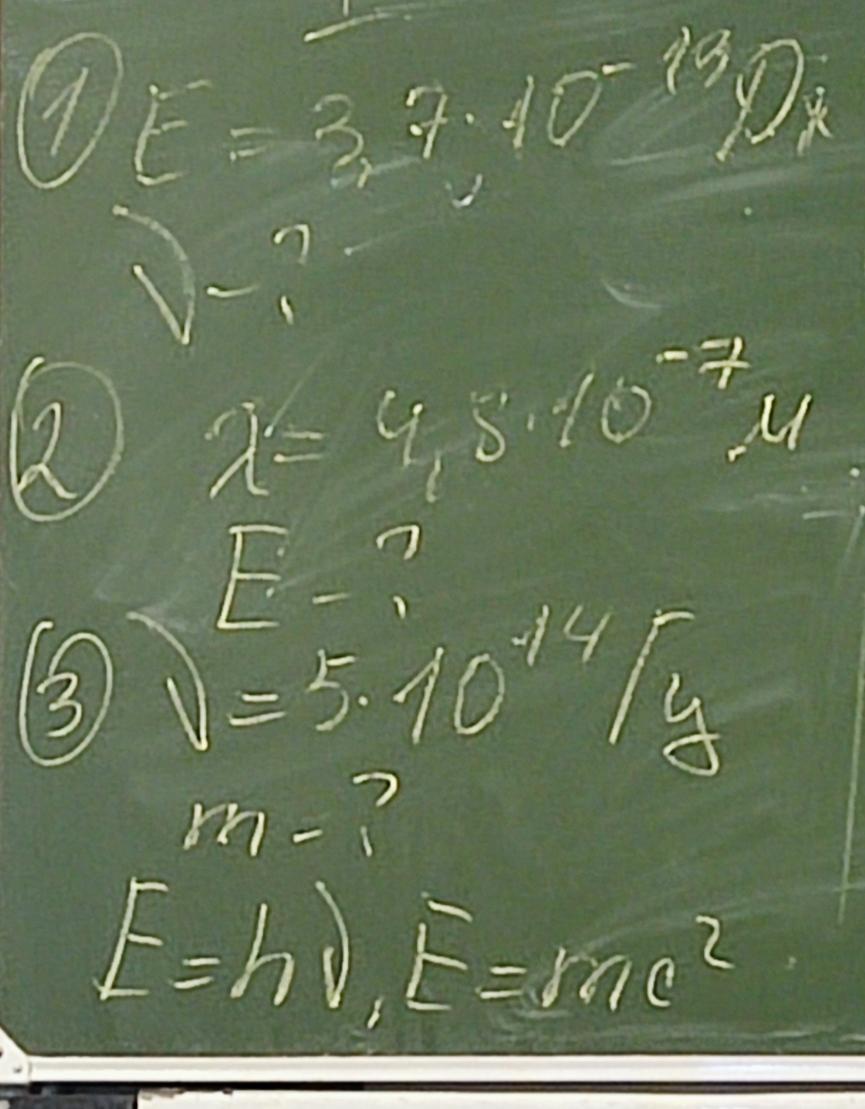 ① E = 3,7·10⁻¹⁹ Дж
ν - ?
② λ = 4,8·10⁻⁷ м
E - ?
③ ν = 5·10¹⁴ Гц
m - ?
E = hν, E = mc²